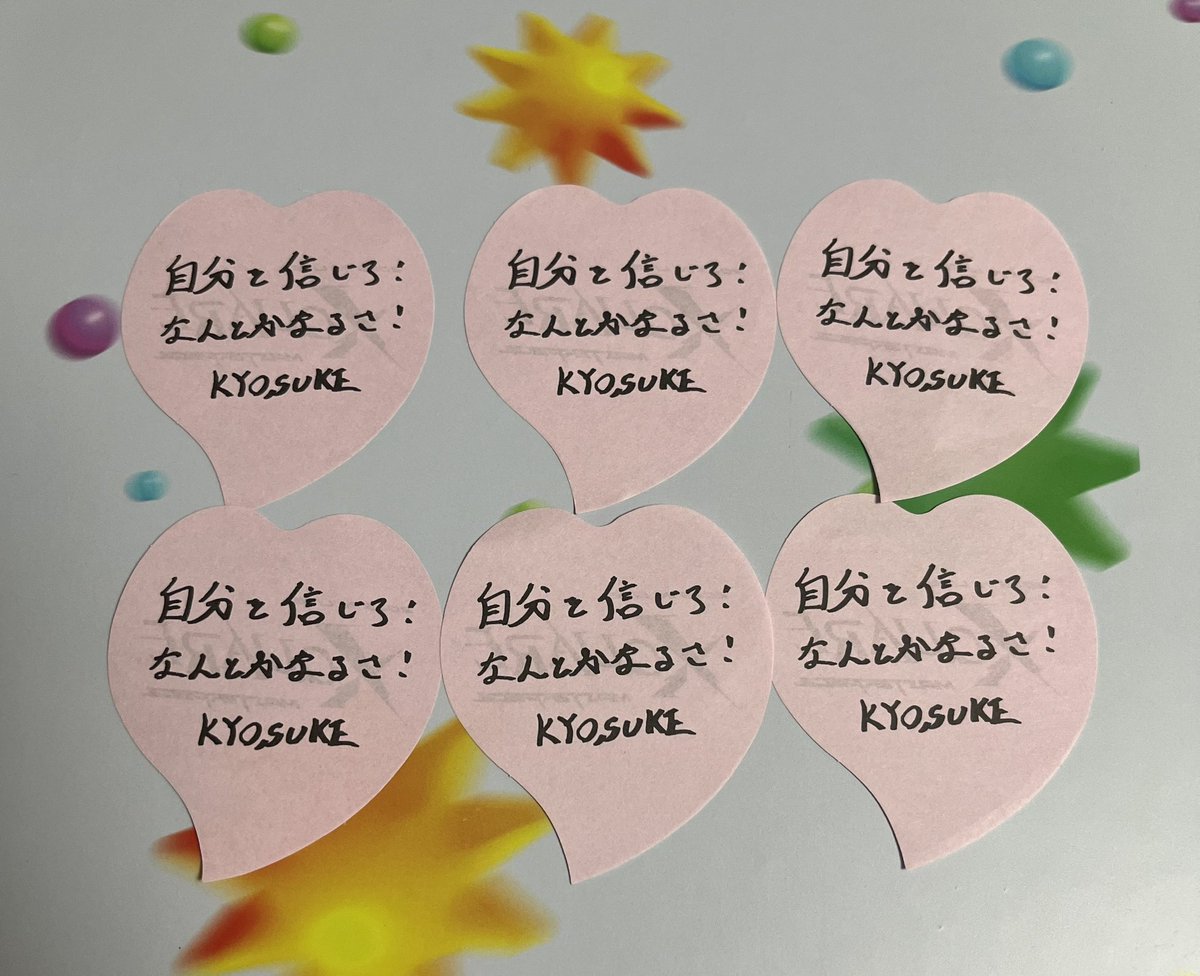 自分を信じろ!
なんとかなるさ!
KYOSUKE
自分を信じろ!
なんとかなるさ!
KYOSUKE
自分を信じろ!
なんとかなるさ!
KYOSUKE
自分を信じろ!
なんとかなるさ!
KYOSUKE
自分を信じろ!
なんとかなるさ!
KYOSUKE
自分を信じろ!
なんとかなるさ!
KYOSUKE